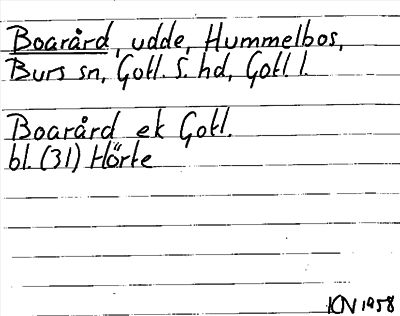 Boarård, udde, Hummelbos,
Burs sn, Gotl. S. hd, Gotl l.
Boarård ek Gotl.
bl. (31) Hörte
KN 1958